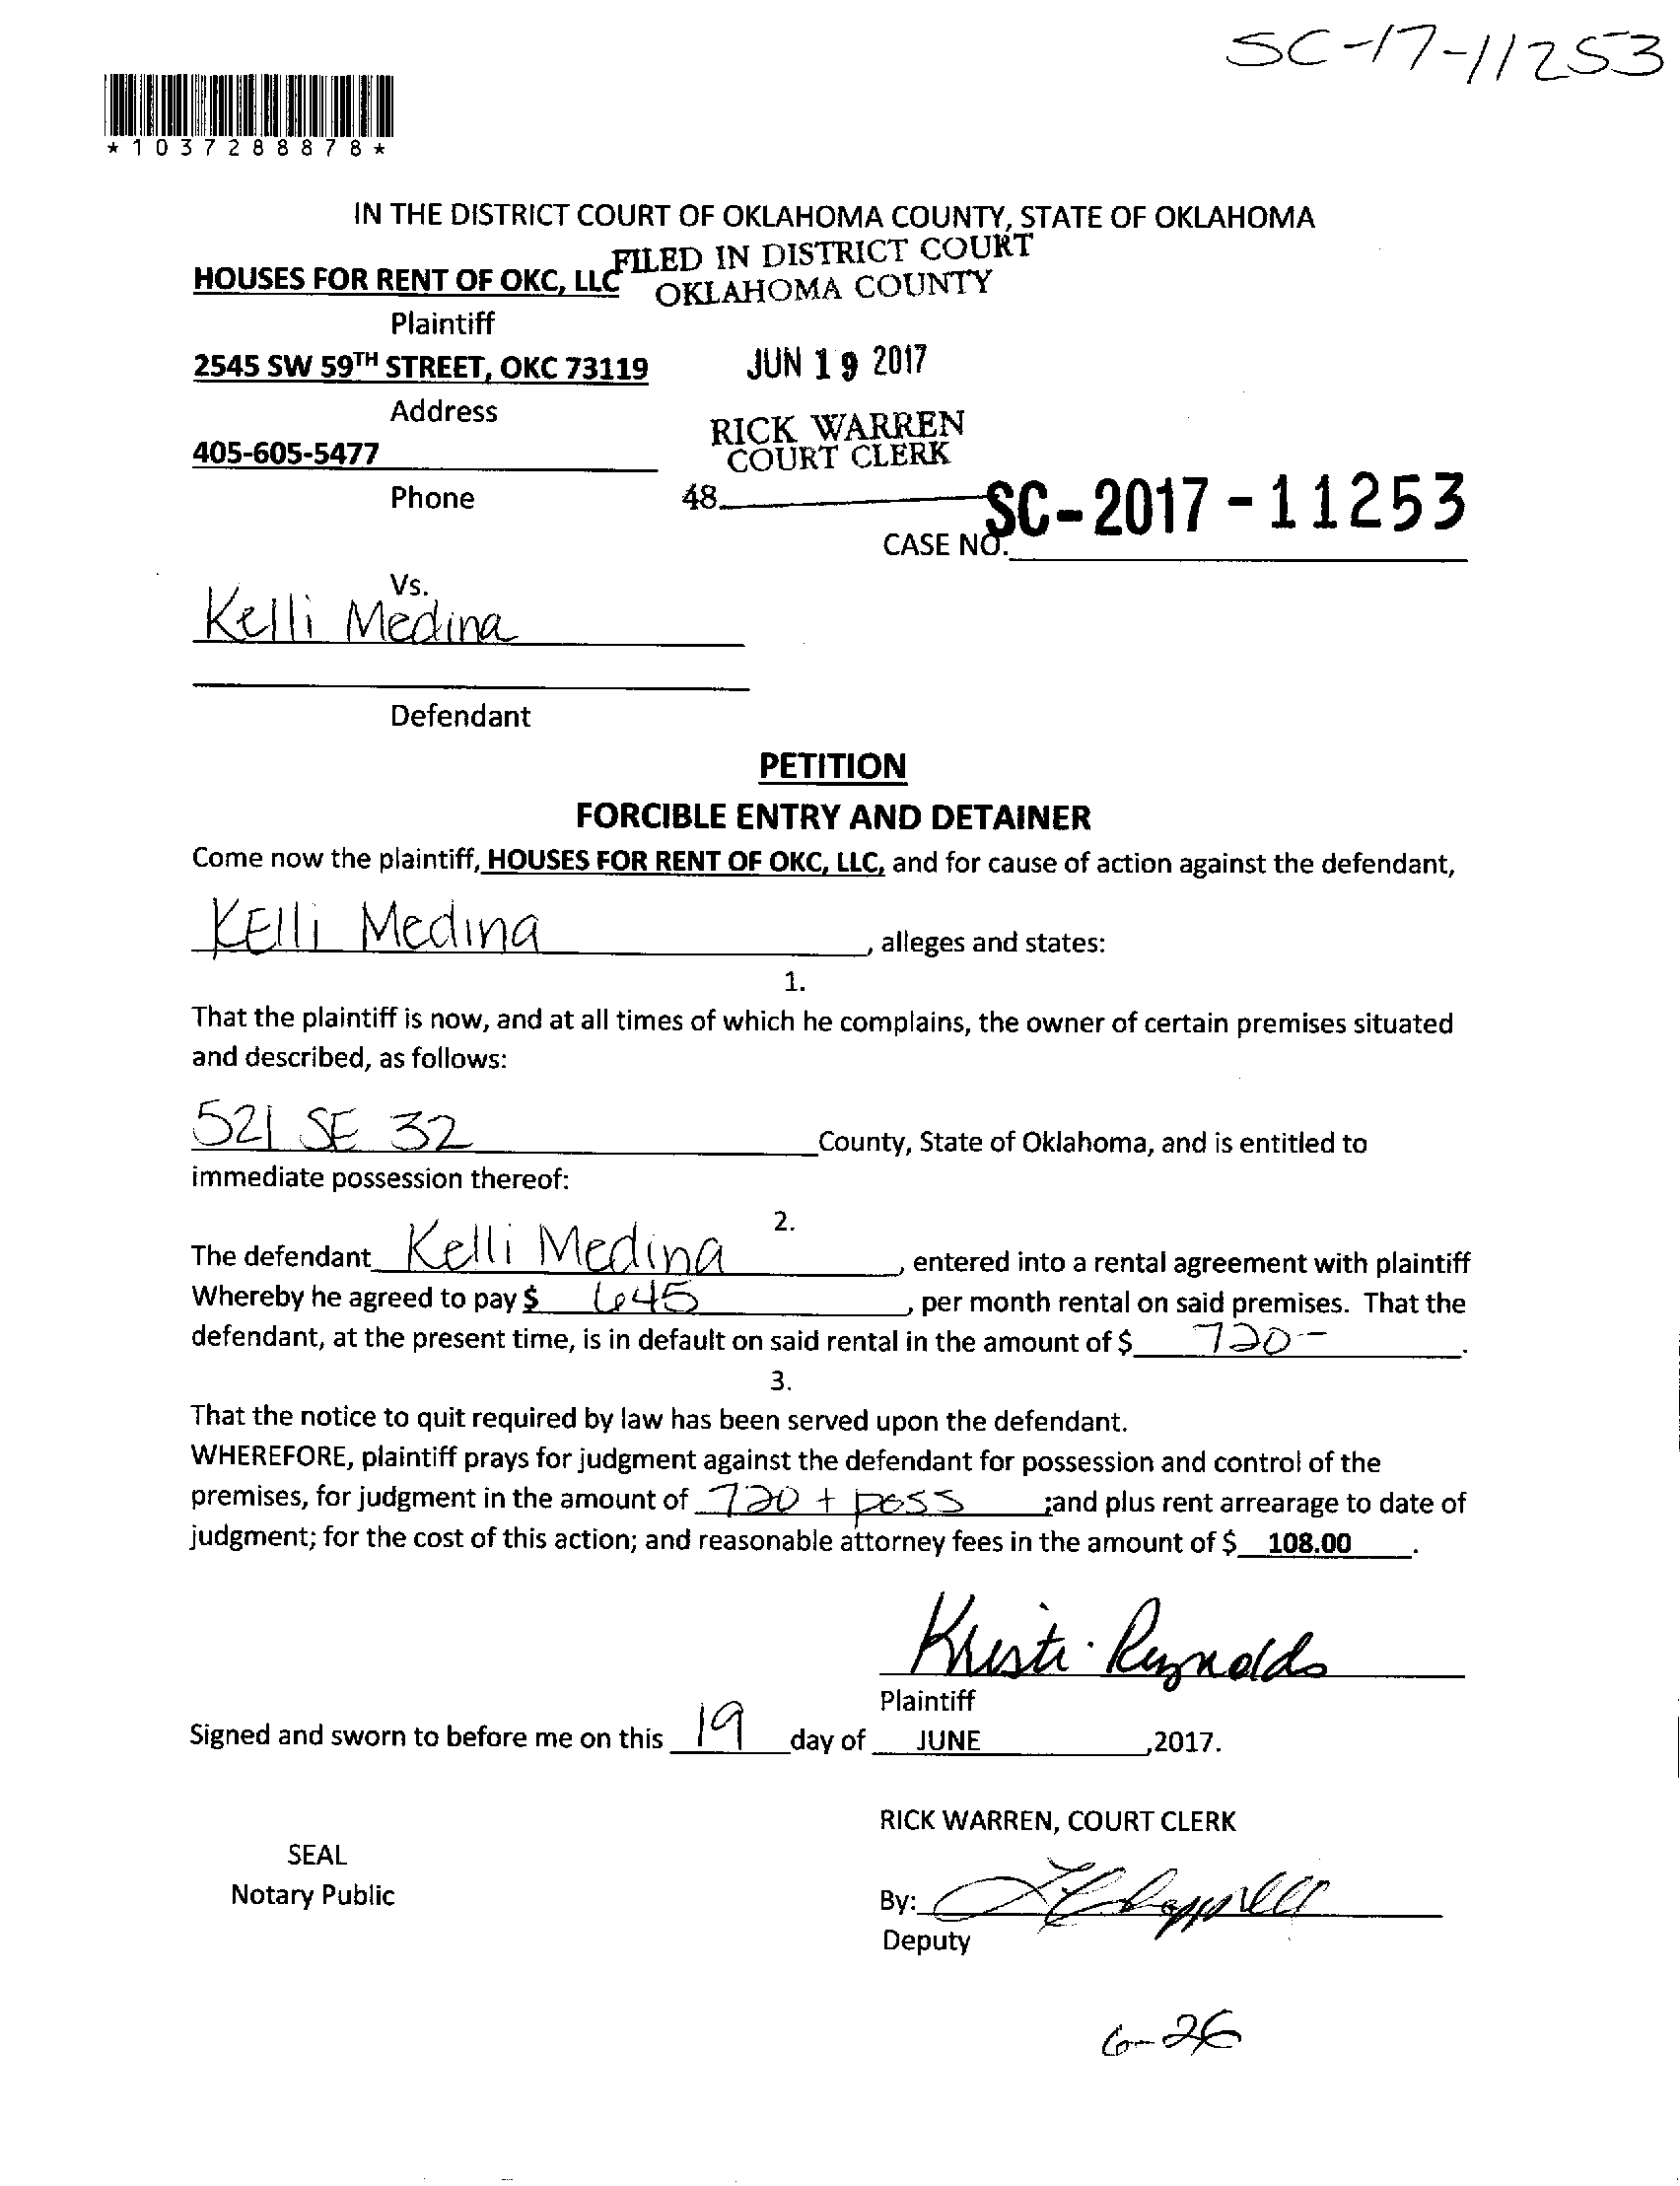 SC-17-11253
*1037288878*
IN THE DISTRICT COURT OF OKLAHOMA COUNTY, STATE OF OKLAHOMA
FILED IN DISTRICT COURT
OKLAHOMA COUNTY
HOUSES FOR RENT OF OKC, LLC
Plaintiff
2545 SW 59TH STREET, OKC 73119
JUN 19 2017
Address
RICK WARREN
COURT CLERK
405-605-5477
Phone
48
SC-2017-11253
CASE NO.
Vs.
Kelli Medina
Defendant
PETITION
FORCIBLE ENTRY AND DETAINER
Come now the plaintiff, HOUSES FOR RENT OF OKC, LLC, and for cause of action against the defendant,
KElli Medina, alleges and states:
1.
That the plaintiff is now, and at all times of which he complains, the owner of certain premises situated
and described, as follows:
521 SE 32 County, State of Oklahoma, and is entitled to
immediate possession thereof:
2.
The defendant Kelli Medina, entered into a rental agreement with plaintiff
Whereby he agreed to pay $ 645, per month rental on said premises. That the
defendant, at the present time, is in default on said rental in the amount of $ 720-.
3.
That the notice to quit required by law has been served upon the defendant.
WHEREFORE, plaintiff prays for judgment against the defendant for possession and control of the
premises, for judgment in the amount of 720 + poss ;and plus rent arrearage to date of
judgment; for the cost of this action; and reasonable attorney fees in the amount of $ 108.00.
Kristi Reynolds
Plaintiff
Signed and sworn to before me on this 19 day of JUNE,2017.
RICK WARREN, COURT CLERK
SEAL
Notary Public
By:
Deputy
6-26